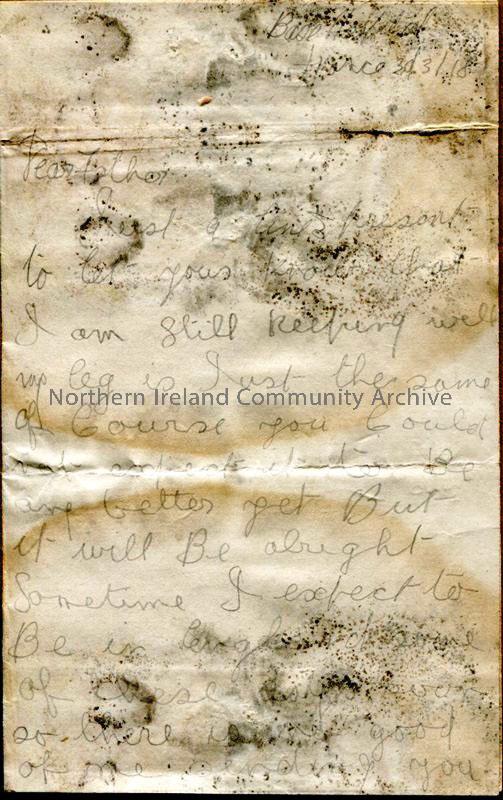 Base Hospital
France 30/3/18
Dear Father
Just a line present
to let yous know that
I am still keeping well
my leg is Just the same
Northern Ireland Community Archive
of Course you Could
not expect it to Be
any better yet But
it will Be alright
Sometime I expect to
Be in England some
of these days now
so there is no good
of me sending you